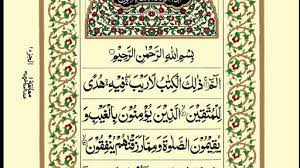 بِسْمِ اللهِ الرَّحْمٰنِ الرَّحِيْمِ
الٓمّٓ ذٰلِكَ الْكِتٰبُ لَا رَيْبَ فِيْهِ هُدًى
لِّلْمُتَّقِيْنَ الَّذِيْنَ يُؤْمِنُوْنَ بِالْغَيْبِ وَ
يُقِيْمُوْنَ الصَّلٰوةَ وَمِمَّا رَزَقْنٰهُمْ يُنْفِقُوْنَ